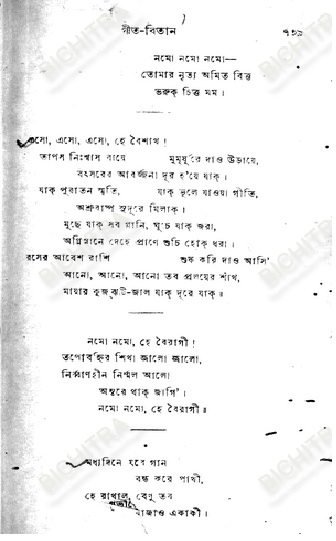 গীত-বিতান ৭৩৯
নমো নমো নমো—
তোমার নৃত্য অমিত বিত্ত
ভরুক্ চিত্ত মম।
এসো, এসো, এসো, হে বৈশাখ!
তাপস নিঃশ্বাস বায়ে মুমূর্ষুরে দাও উড়ায়ে,
বৎসরের আবর্জ্জনা দূর হ'য়ে যাক্।
যাক্ পুরাতন স্মৃতি, যাক্ ভুলে যাওয়া গীতি,
অশ্রুবাষ্প সুদূরে মিলাক্।
মুছে যাক্ সব গ্লানি, ঘুচে যাক্ জরা,
অগ্নিস্নানে দেহে প্রাণে শুচি হোক্ ধরা।
রসের আবেশ রাশি শুষ্ক করি দাও আসি'
আনো, আনো, আনো তব প্রলয়ের শাঁখ,
মায়ার কুজ্ঝটি-জাল যাক্ দূরে যাক্॥
নমো নমো, হে বৈরাগী!
তপোবহ্নির শিখা জ্বালো জ্বালো,
নির্ব্বাণহীন নির্ম্মল আলো
অন্তরে থাক্ জাগি'।
নমো নমো, হে বৈরাগী॥
মধ্যদিনে যবে গান
বন্ধ করে পাখী,
হে রাখাল, বেণু তব
বাজাও একাকী।
BICHITRA